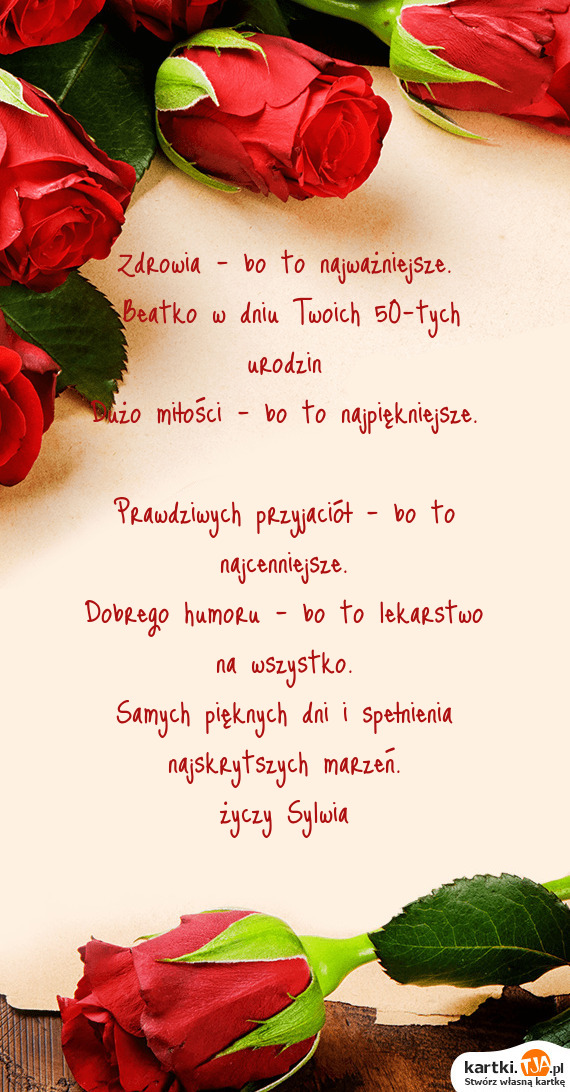 Zdrowia - bo to najważniejsze.
Beatko w dniu Twoich 50-tych
urodzin
Dużo miłości - bo to najpiękniejsze.
Prawdziwych przyjaciół - bo to
najcenniejsze.
Dobrego humoru - bo to lekarstwo
na wszystko.
Samych pięknych dni i spełnienia
najskrytszych marzeń.
życzy Sylwia
kartki.TJA.pl
Stwórz własną kartkę